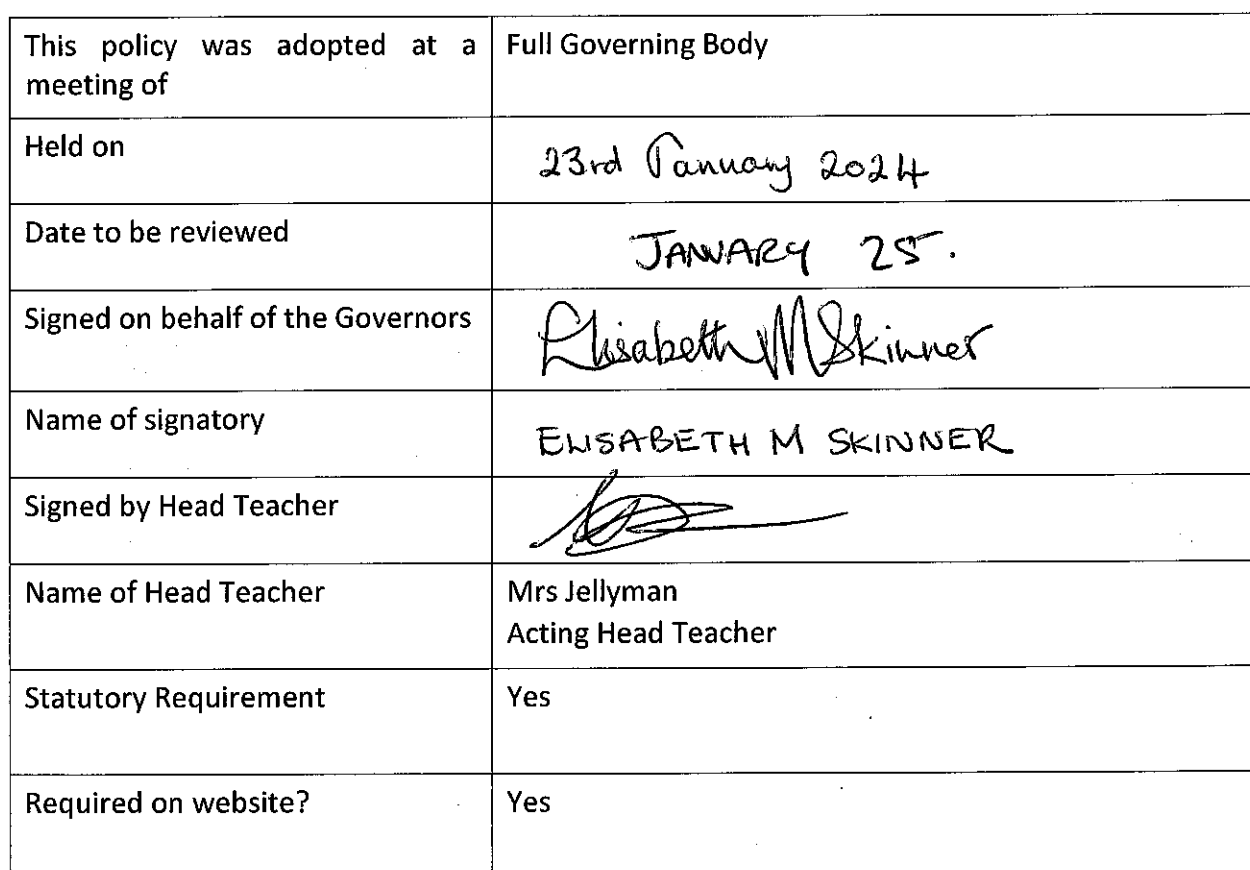 This policy was adopted at a
meeting of
Full Governing Body
Held on
23rd January 2024
Date to be reviewed
JANUARY 25.
Signed on behalf of the Governors
Elisabeth M Skinner
Name of signatory
ELISABETH M SKINNER
Signed by Head Teacher
Name of Head Teacher
Mrs Jellyman
Acting Head Teacher
Statutory Requirement
Yes
Required on website?
Yes